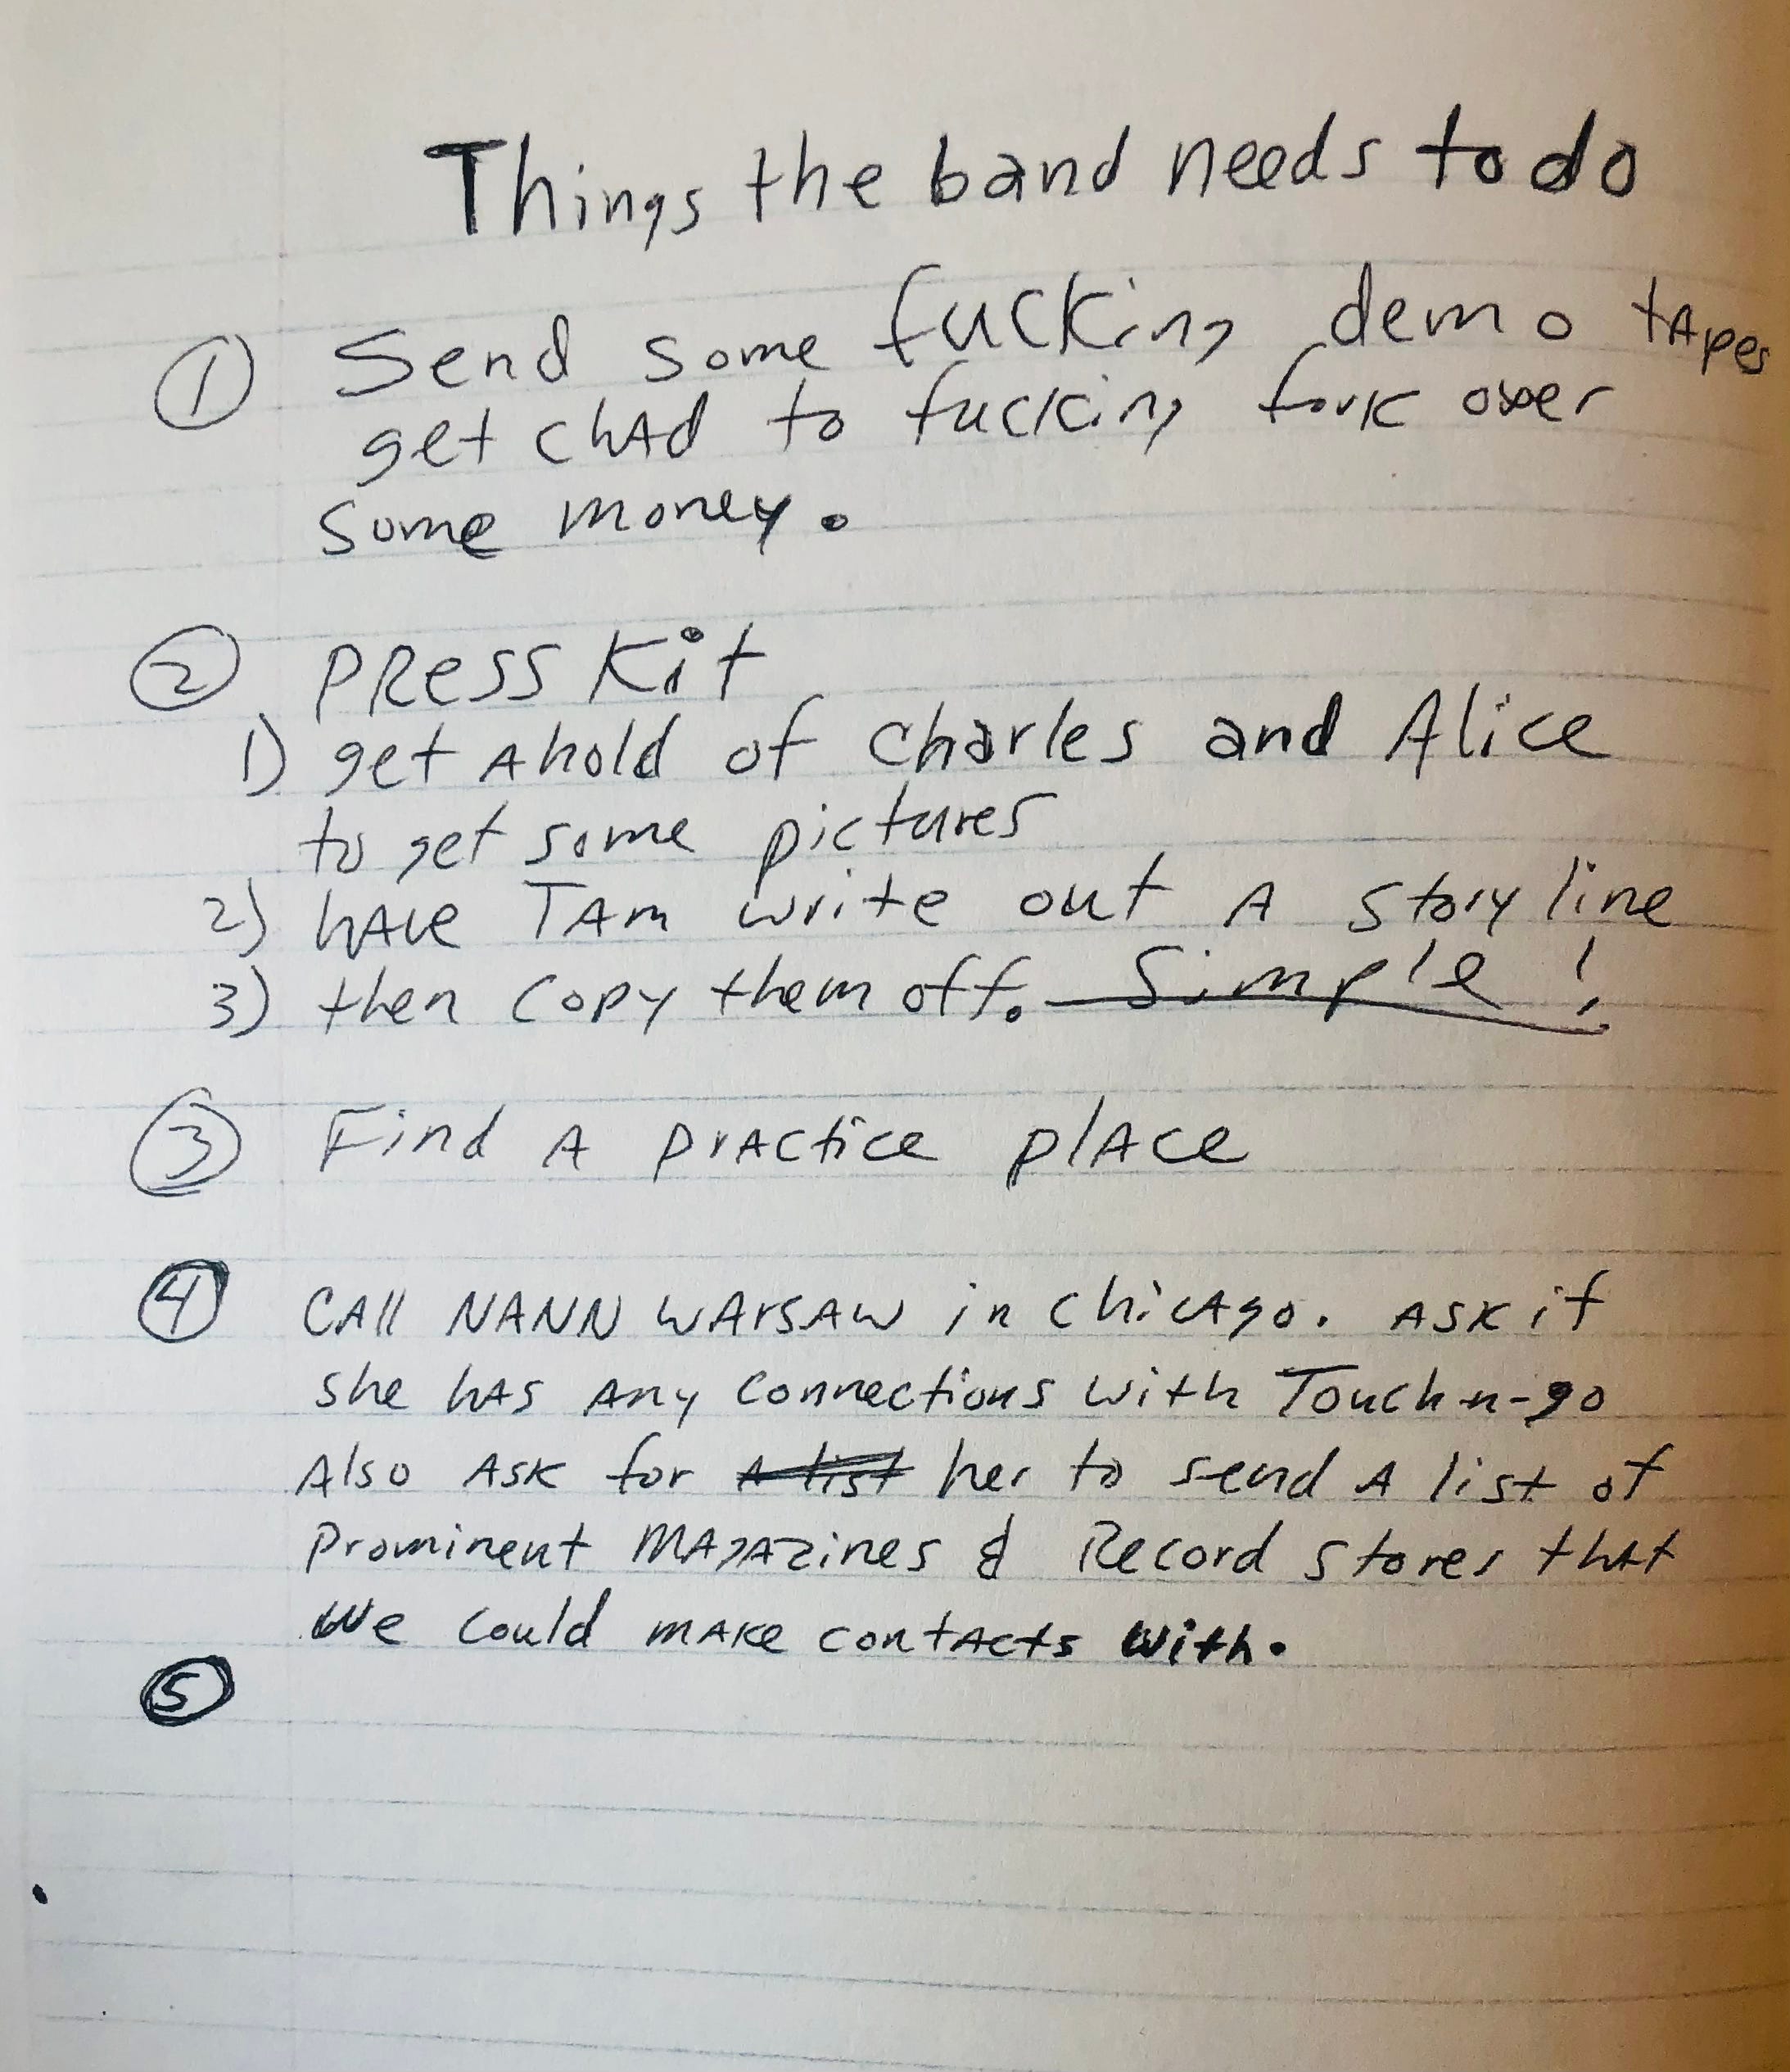 Things the band needs to do
① Send some fucking demo tApes
get chAd to fucking fork over
some money.
② PRess Kit
1) get Ahold of Charles and Alice
to get some pictures
2) hAve TAm write out A story line
3) then copy them off. Simple!
③ Find A prActice plAce
④ CAll NANN WArsAw in ChicAgo. Ask if
she hAs Any connections with Touch-n-go
Also Ask for A list her to send A list of
Prominent MAgAzines & Record stores thAt
We could mAke contActs with.
⑤